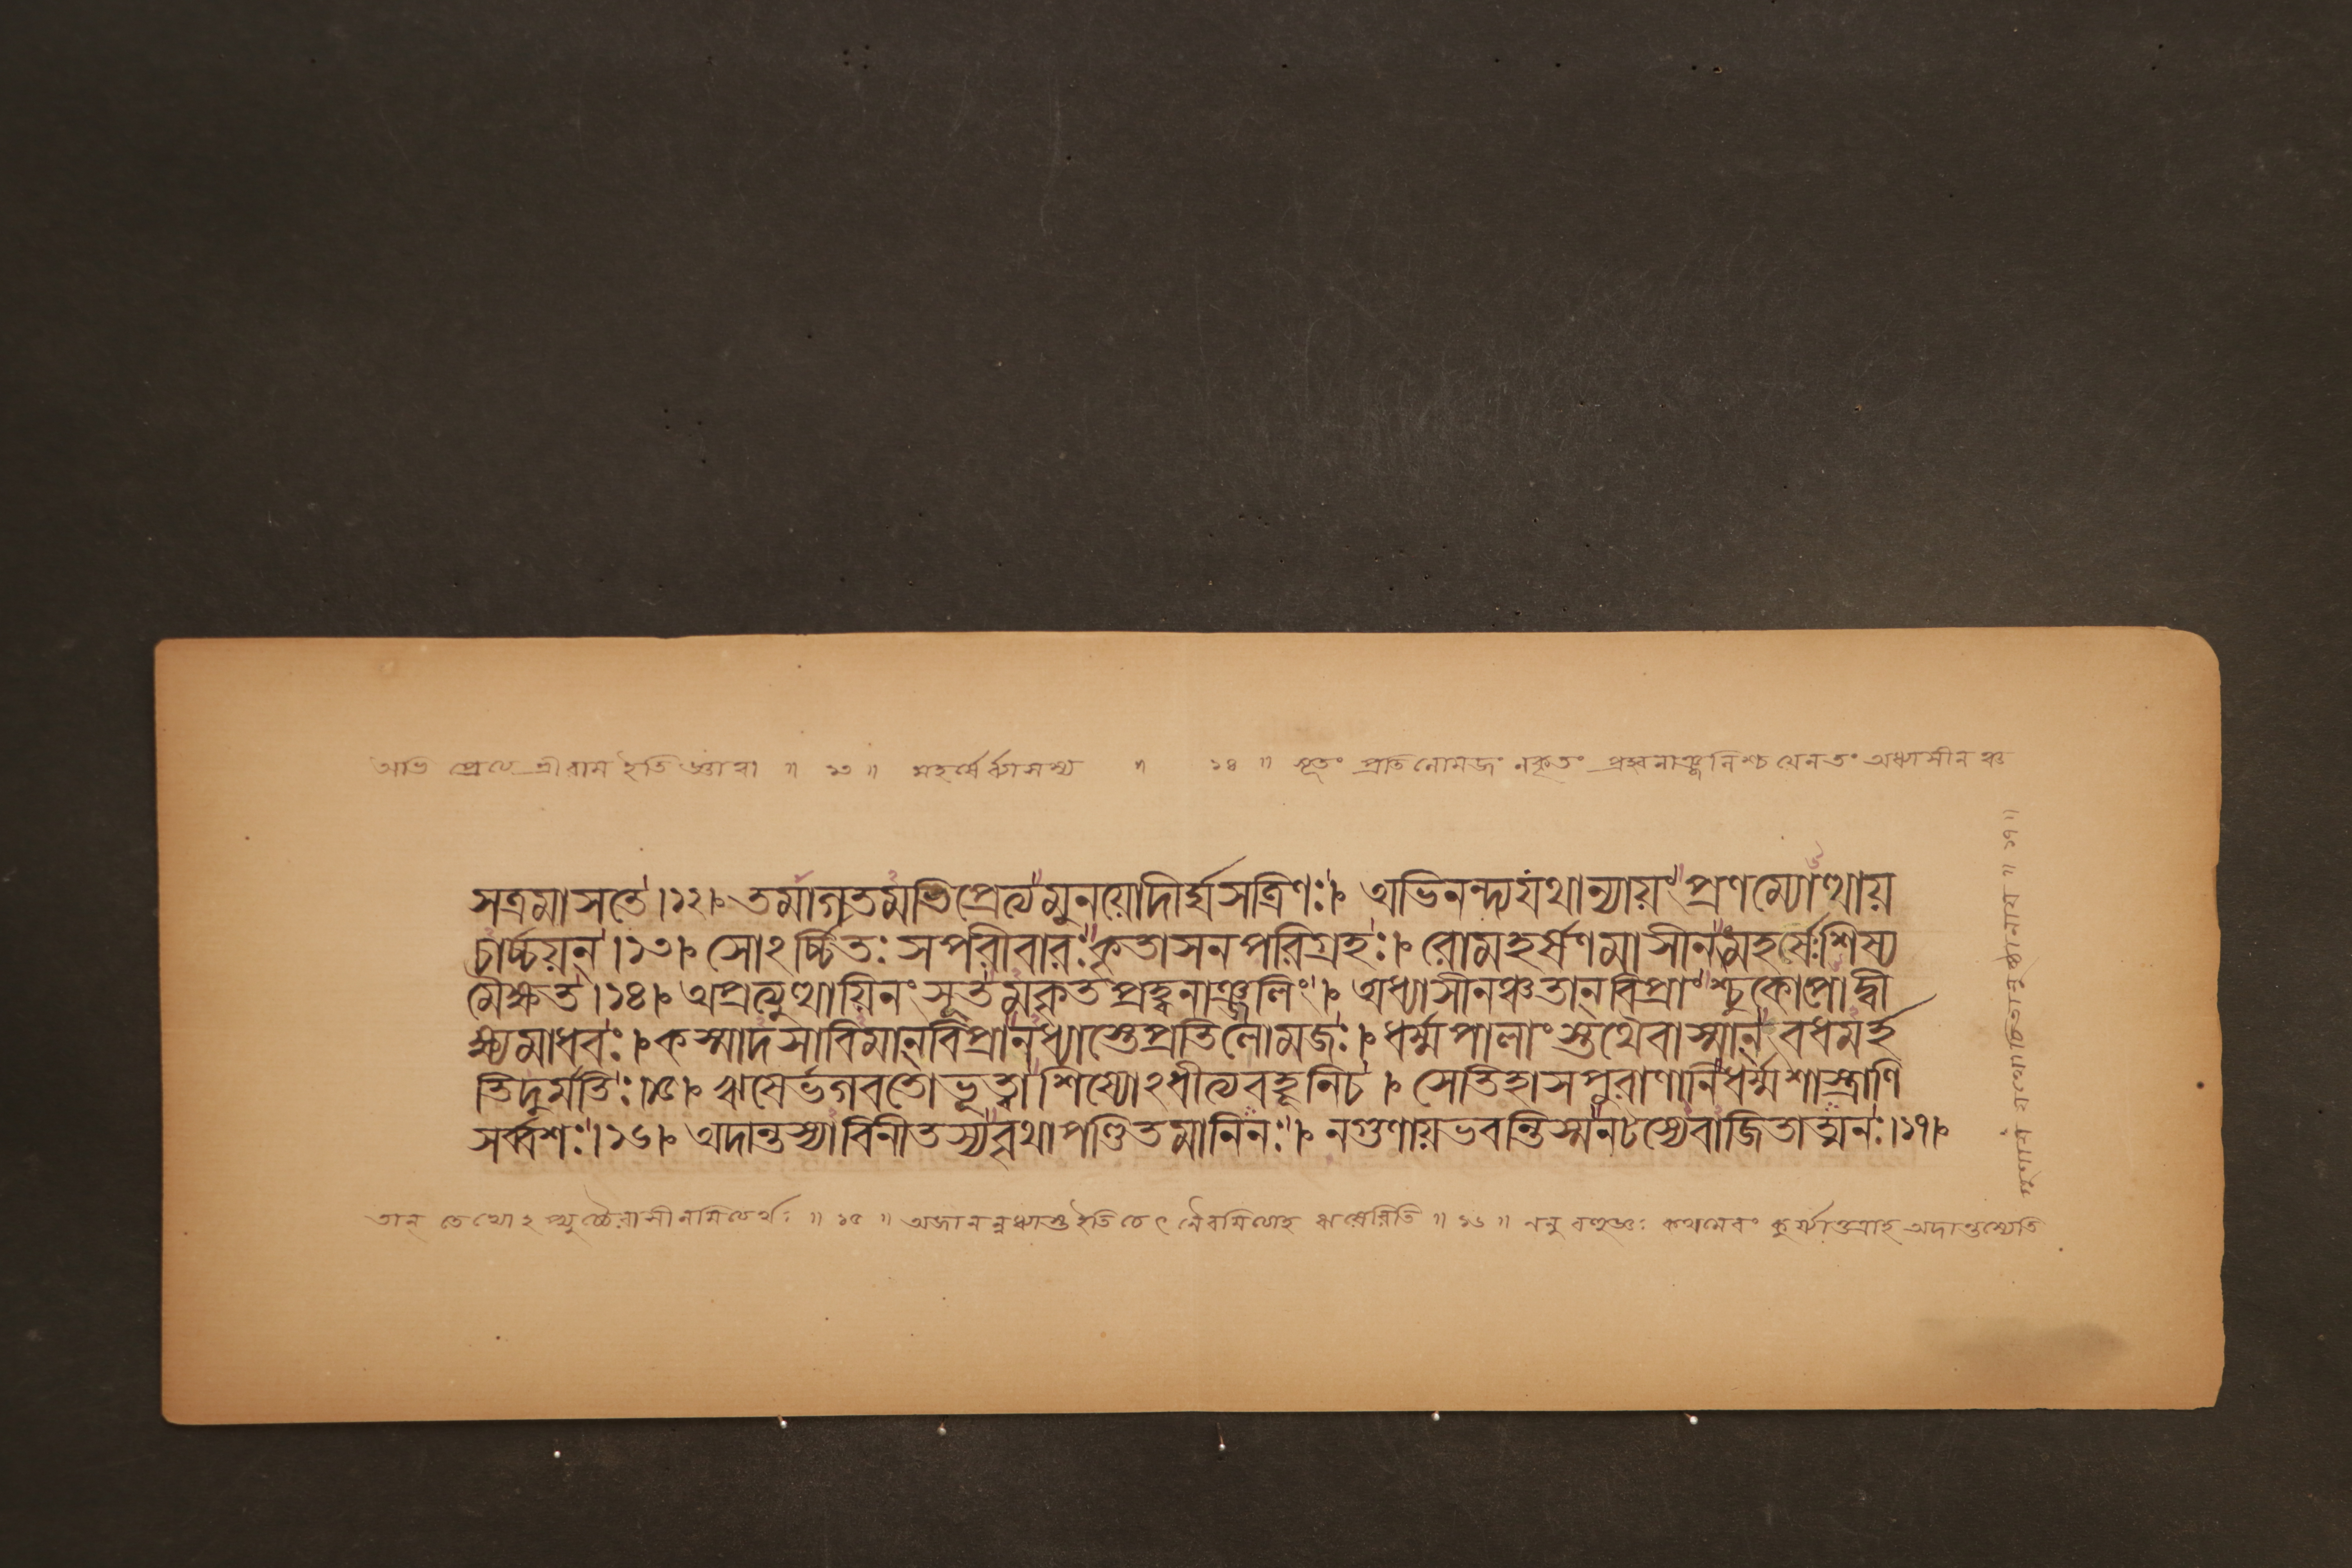 অভি প্রেত্য শ্রীরাম ইতি জ্ঞাত্বা ॥ ১৩ ॥ মহর্ষের্ব্যাসস্য ॥ ১৪ ॥ সূতং প্রতিলোমজং নকৃতং প্রহ্বনাঞ্জলিশ্চ যেন তং অধ্যাসীনঞ্চ
সত্রমাসতে।১২। তমাগতমভিপ্রেত্যমুনয়োদীর্ঘসত্রিণঃ। অভিনন্দ্যযথান্যায়ংপ্রণম্যোত্থায়
চার্চ্চয়ন্।১৩। সোঽর্চ্চিতঃ সপরীবারঃকৃতাসনপরিগ্রহঃ। রোমহর্সণমাসীনংমহর্সেঃশিষ্য
মৈক্ষত।১৪। অপ্রত্যুত্থায়িনং সূতমকৃতপ্রহ্বনাঞ্জলিং। অধ্যাসীনঞ্চতান্ বিপ্রাংশ্চুকোপোদ্বী
ক্ষ্যমাধবঃ। কস্মাদসাবিমান্বিপ্রানধ্যাস্তেপ্রতিলোমজঃ। ধর্ম্মপালাংস্তথৈবাস্মান্ বধমর্হ
তিদুর্মতিঃ।১৫। ঋষের্ভগবতোভূত্বাশিষ্যোঽধীত্যবহূনিচ। সেতিহাসপুরাণানিধর্ম্মশাস্ত্রাণি
সর্ব্বশঃ।১৬। অদান্তস্যাবিনীতস্যবৃথাপণ্ডিতমানিনঃ। নগুণায়ভবন্তিস্মনটস্যেবাজিতাত্মনঃ।১৭।
তান্ তেভ্যোঽপ্যুচ্চৈরাসীনমিত্যর্থঃ ॥ ১৫ ॥ অজানন্নধ্যাস্ত ইতি চেৎ নৈবমিত্যাহ ঋষেরিতি ॥ ১৬ ॥ ননু বহুজ্ঞঃ কথমেবং কুর্য্যাত্তত্রাহ অদান্তস্যেতি
॥ ১৭ ॥